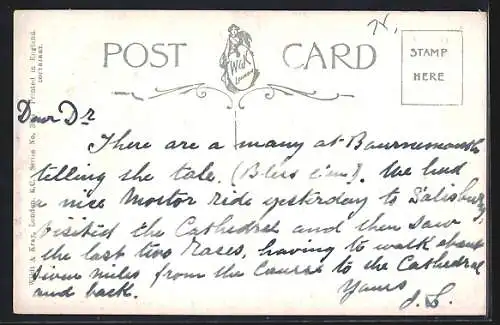 POST CARD
W&K
London
STAMP
HERE
Wildt & Kray, London, E.C. Series No.
Printed in England.
COPYRIGHT.
Dear Dr
There are a many at Bournemouth
telling she tale. (Bless 'em). We had
a nice Mortor ride yesterday to Salisbury,
visited the Cathedral and then saw
the last two Races, having to walk about
seven miles from the Course to the Cathedral
and back.
Yours
J. S.